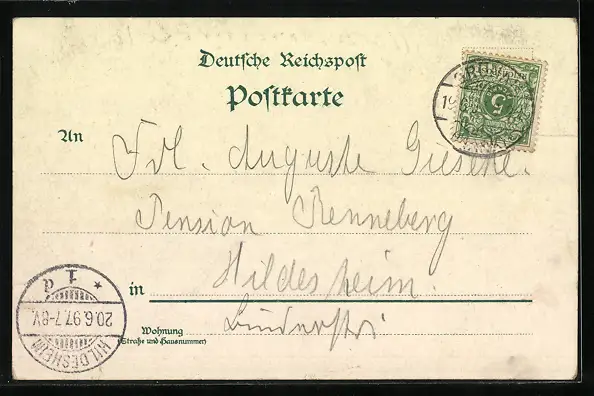 Deutsche Reichspost
Postkarte
An Frl. Auguste Gieseke.
Pension Renneberg
in Hildesheim.
Wohnung
(Straße und Hausnummer)
5
1 d
20.6.97.7-8V.
HILDESHEIM